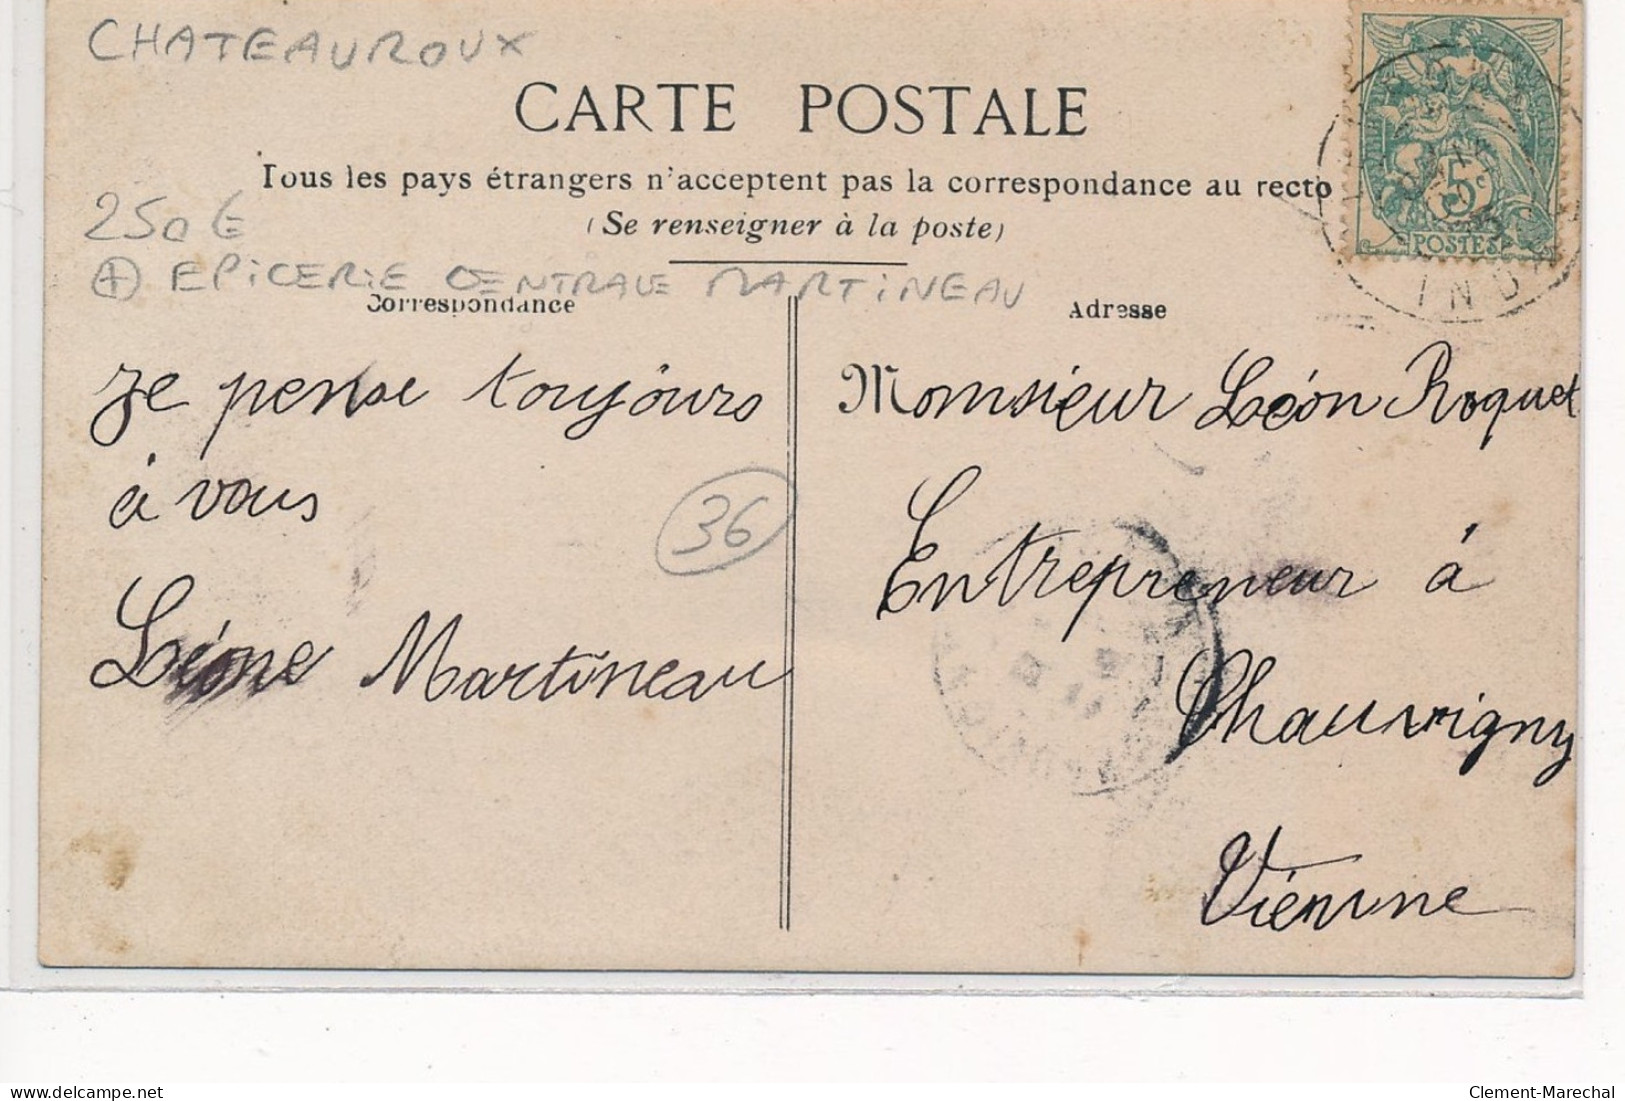 CHATEAUROUX
CARTE POSTALE
Tous les pays étrangers n'acceptent pas la correspondance au recto
(Se renseigner à la poste)
250€
+ EPICERIE CENTRALE MARTINEAU
Correspondance
Adresse
5c
POSTES
IND
Je pense toujours
à vous
Léone Martineau
36
Monsieur Léon Roquet
Entrepreneur à
Chauvigny
Vienne
delcampe.net
Clement-Marechal